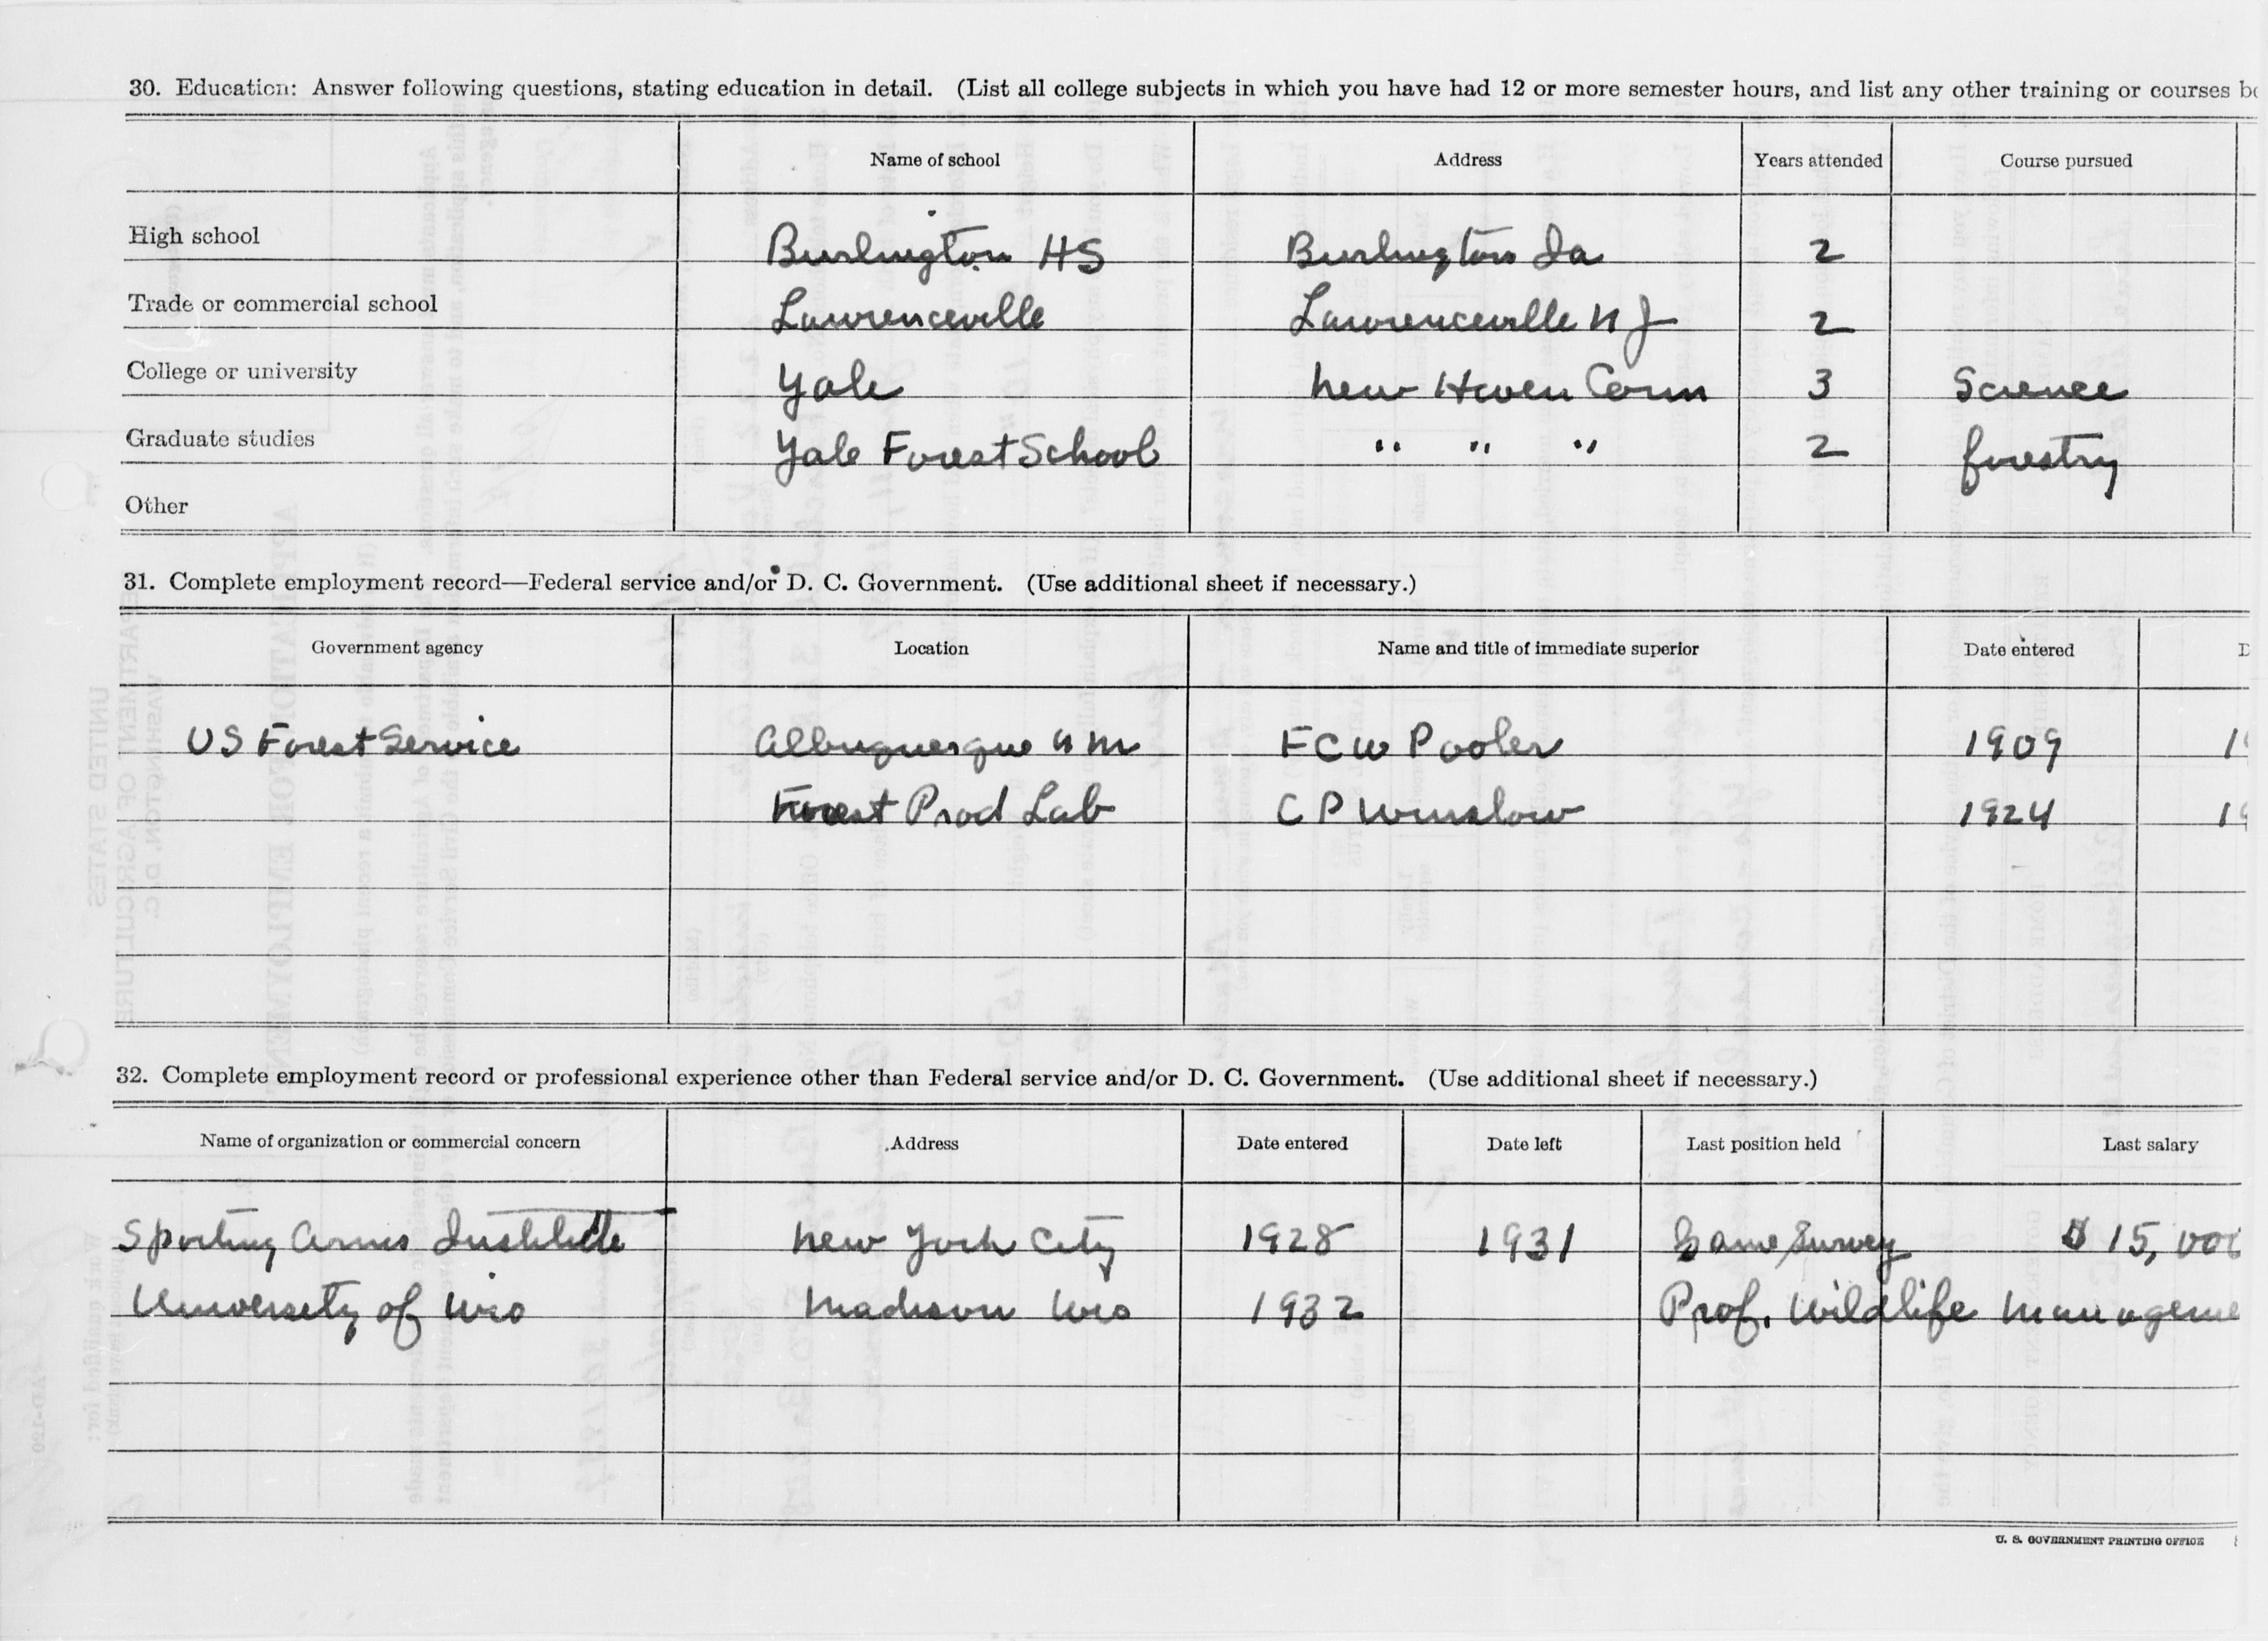 30. Education: Answer following questions, stating education in detail. (List all college subjects in which you have had 12 or more semester hours, and list any other training or courses
Name of school Address Years attended Course pursued
High school Burlington HS Burlington Ia 2
Trade or commercial school Lawrenceville Lawrenceville N J 2
College or university Yale New Haven Conn 3 Science
Graduate studies Yale Forest School " " " 2 forestry
Other
31. Complete employment record—Federal service and/or D. C. Government. (Use additional sheet if necessary.)
Government agency Location Name and title of immediate superior Date entered
US Forest Service Albuquerque N M F C W Pooler 1909
Forest Prod Lab C P Winslow 1924
32. Complete employment record or professional experience other than Federal service and/or D. C. Government. (Use additional sheet if necessary.)
Name of organization or commercial concern Address Date entered Date left Last position held Last salary
Sporting Arms Institute New York City 1928 1931 Game Survey $ 15,000
University of Wis Madison Wis 1932 Prof. Wildlife Manageme
U. S. GOVERNMENT PRINTING OFFICE